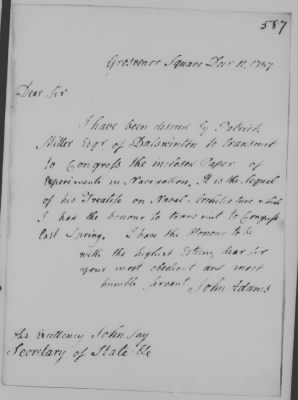 587
Grosvenor Square Decr 11. 1787
Dear Sir
I have been desired by Patrick
Miller Esqr. of Dalswinton to transmit
to Congress the inclosed Paper of
Experiments in Navigation. It is the Sequel
of his Treatise on Naval Architecture which
I had the honour to transmit to Congress
last Spring. I have the Honour to be
with the highest Esteem, dear Sir
your most obedient and most
humble Servant John Adams
His Excellency John Jay
Secretary of State &c